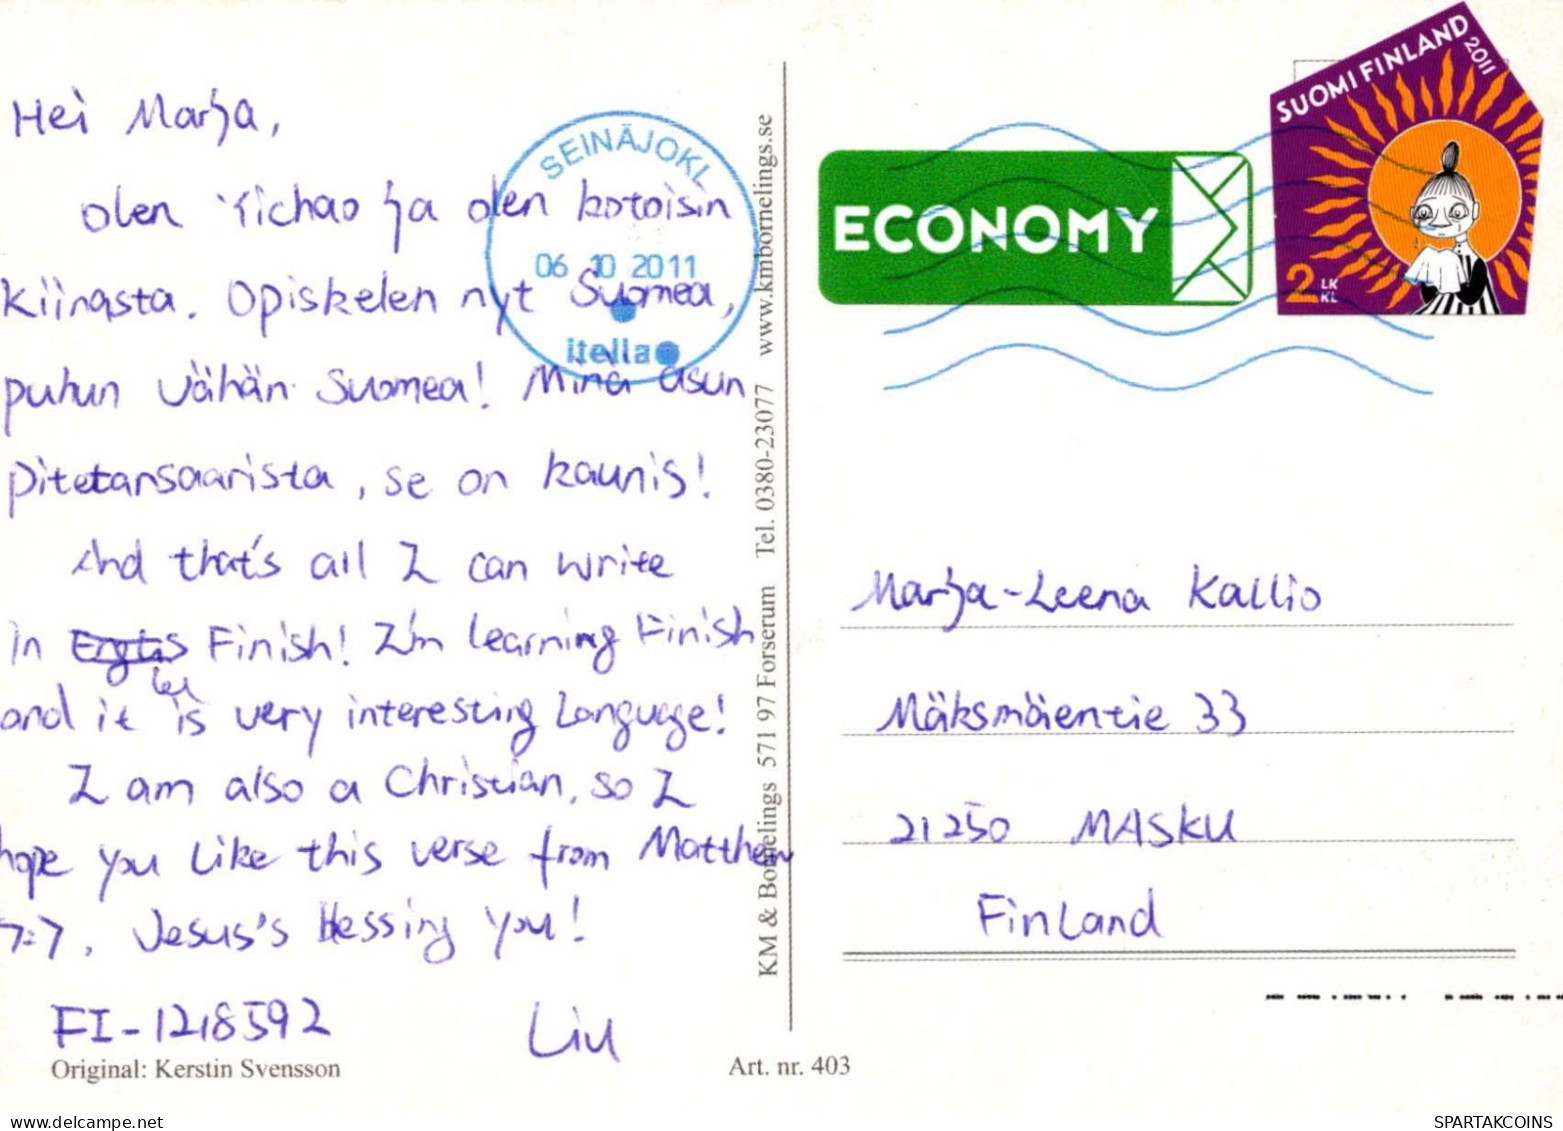 Hei Marja,
olen Yichao ja olen kotoisin
Kiinasta. Opiskelen nyt Suomea,
puhun vähän Suomea! Minä asun
pitetansaarista, se on kaunis!
And that's all I can write
in Finish! I'm learning Finish
and it is very interesting Language!
I am also a Christian, so I
hope you like this verse from Matthew
7:7, Jesus's blessing you!
FI-1218592 Liu
Original: Kerstin Svensson
Art. nr. 403
SEINÄJOKI
06.10 2011
itella
KM & Bornelings 571 97 Forserum Tel. 0380-23077 www.kmbornelings.se
ECONOMY
SUOMI FINLAND
2011
2 LK
KL
Marja-Leena Kallio
Mäksmäentie 33
21250 MASKU
Finland
www.delcampe.net
SPARTAKCOINS